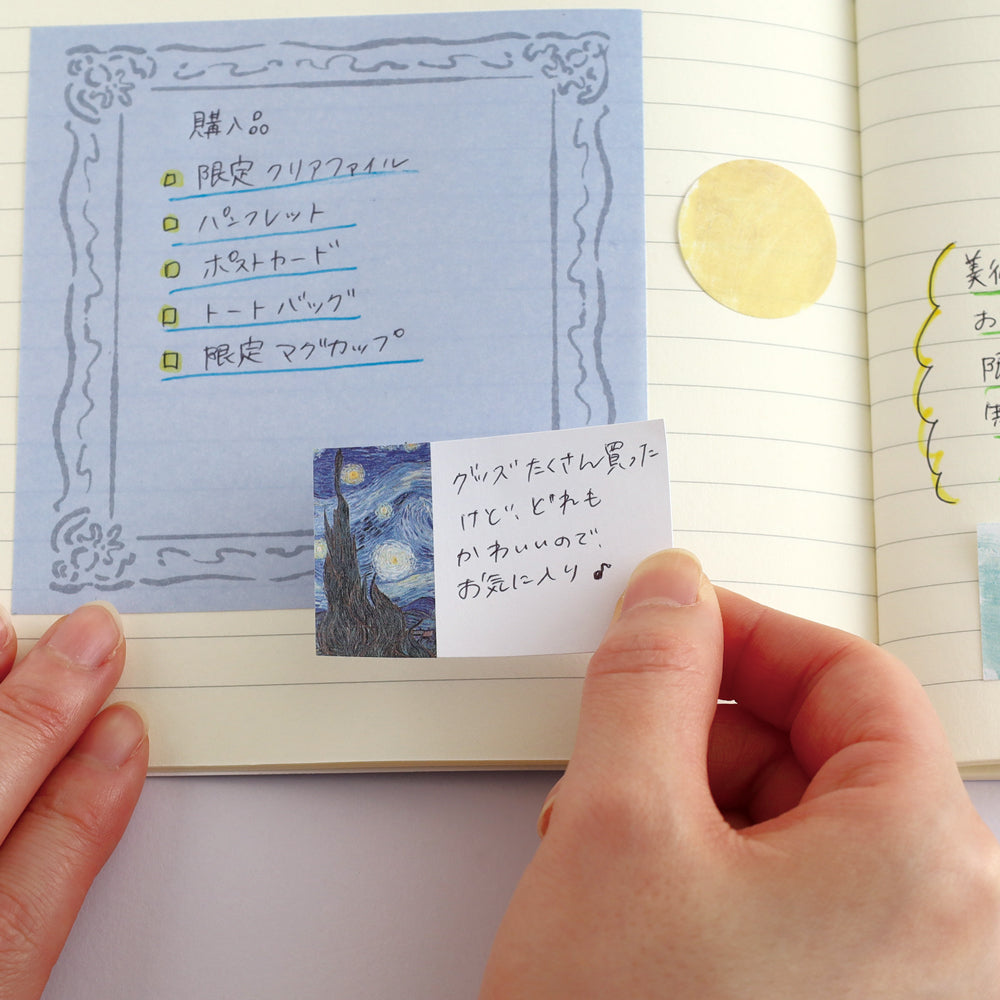 購入品
限定 クリアファイル
パンフレット
ポストカード
トートバッグ
限定 マグカップ
グッズたくさん買った
けど、どれも
かわいいので、
お気に入り♪
美
お
限